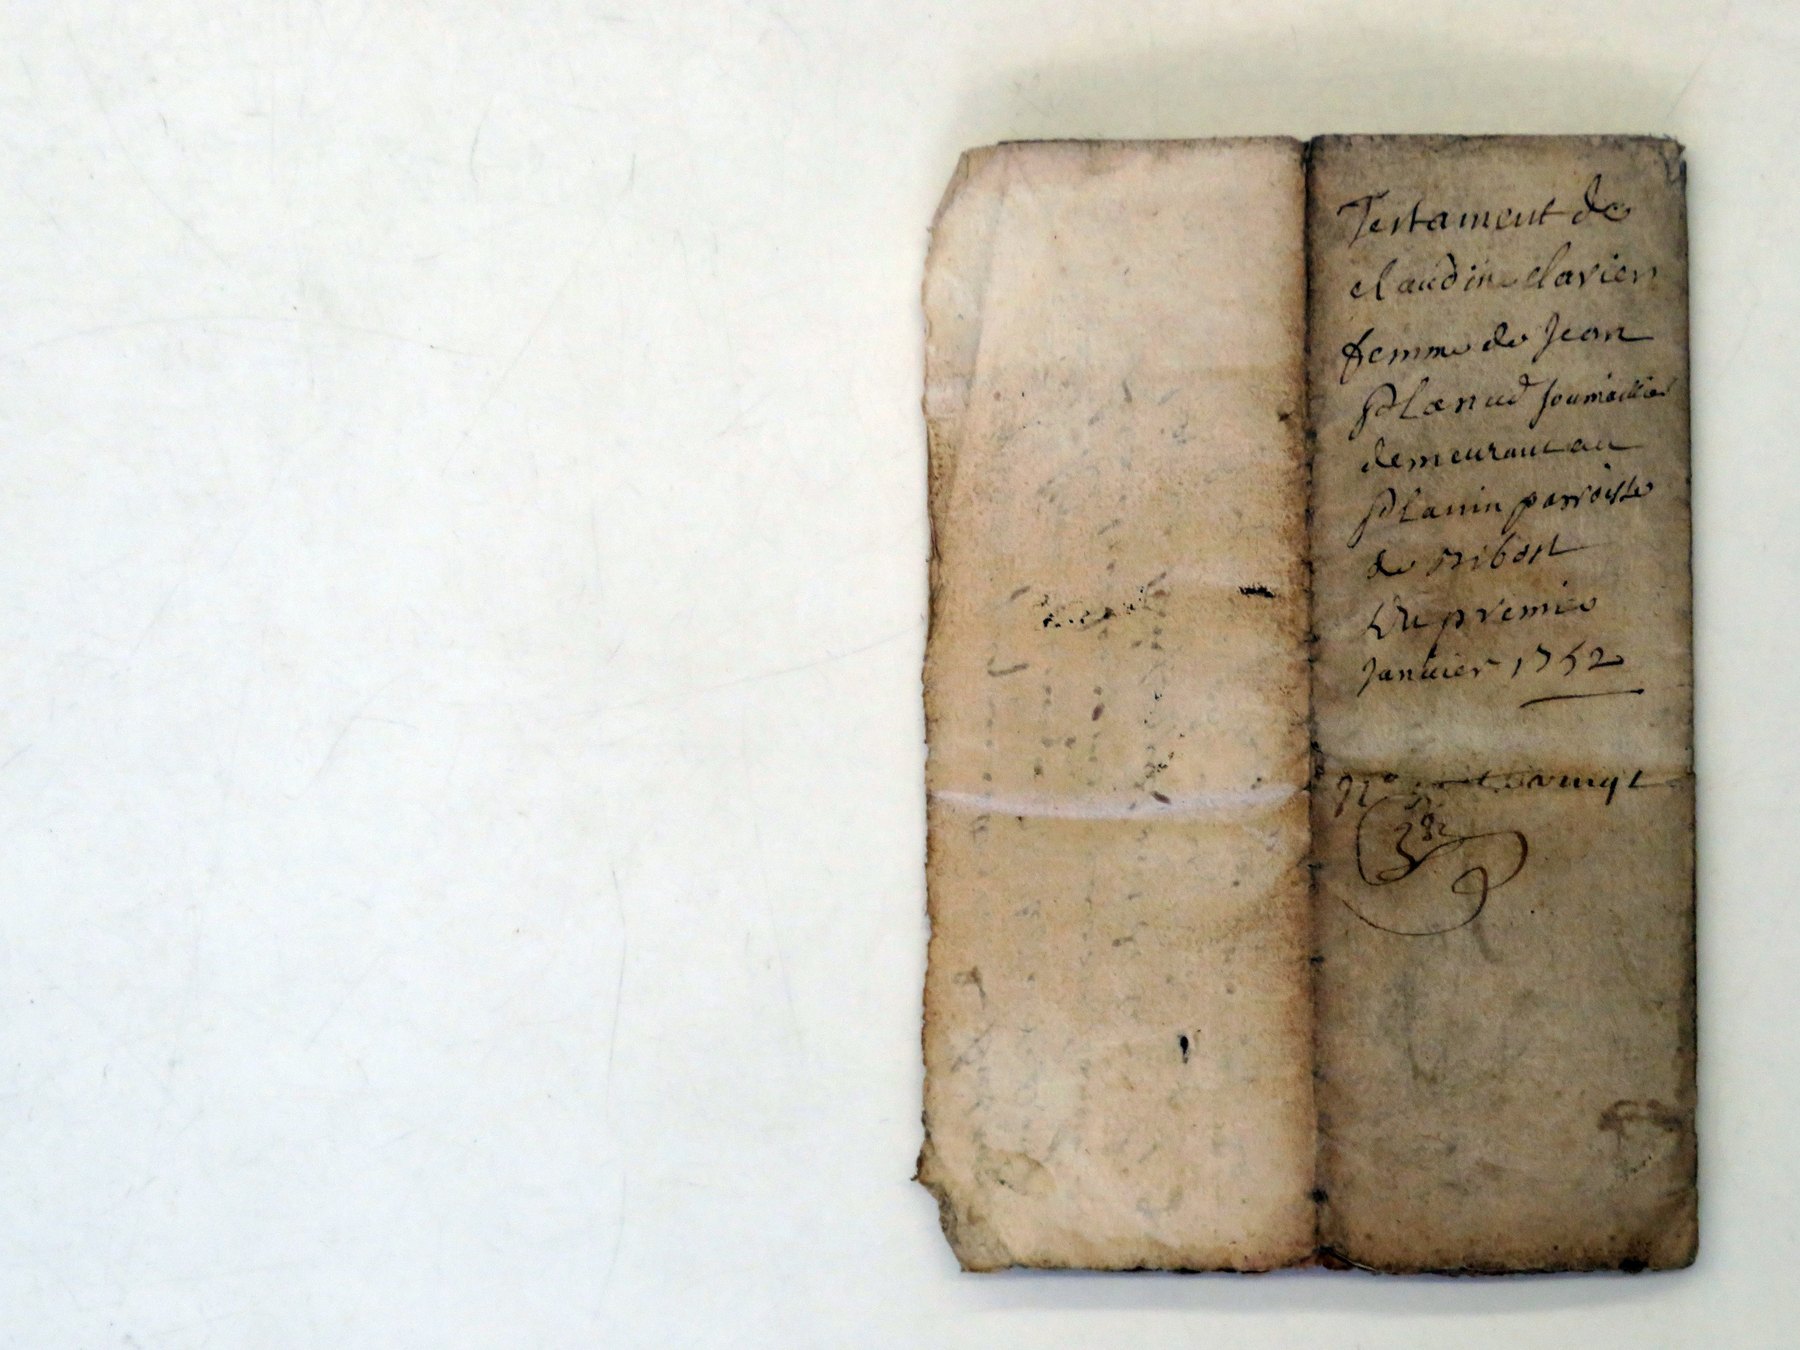 Testament de
claudine clavier
femme de Jean
Planud journaillier
demeurant au
Planin parroisse
de ribost
Du premie
Janvier 1752
vingt